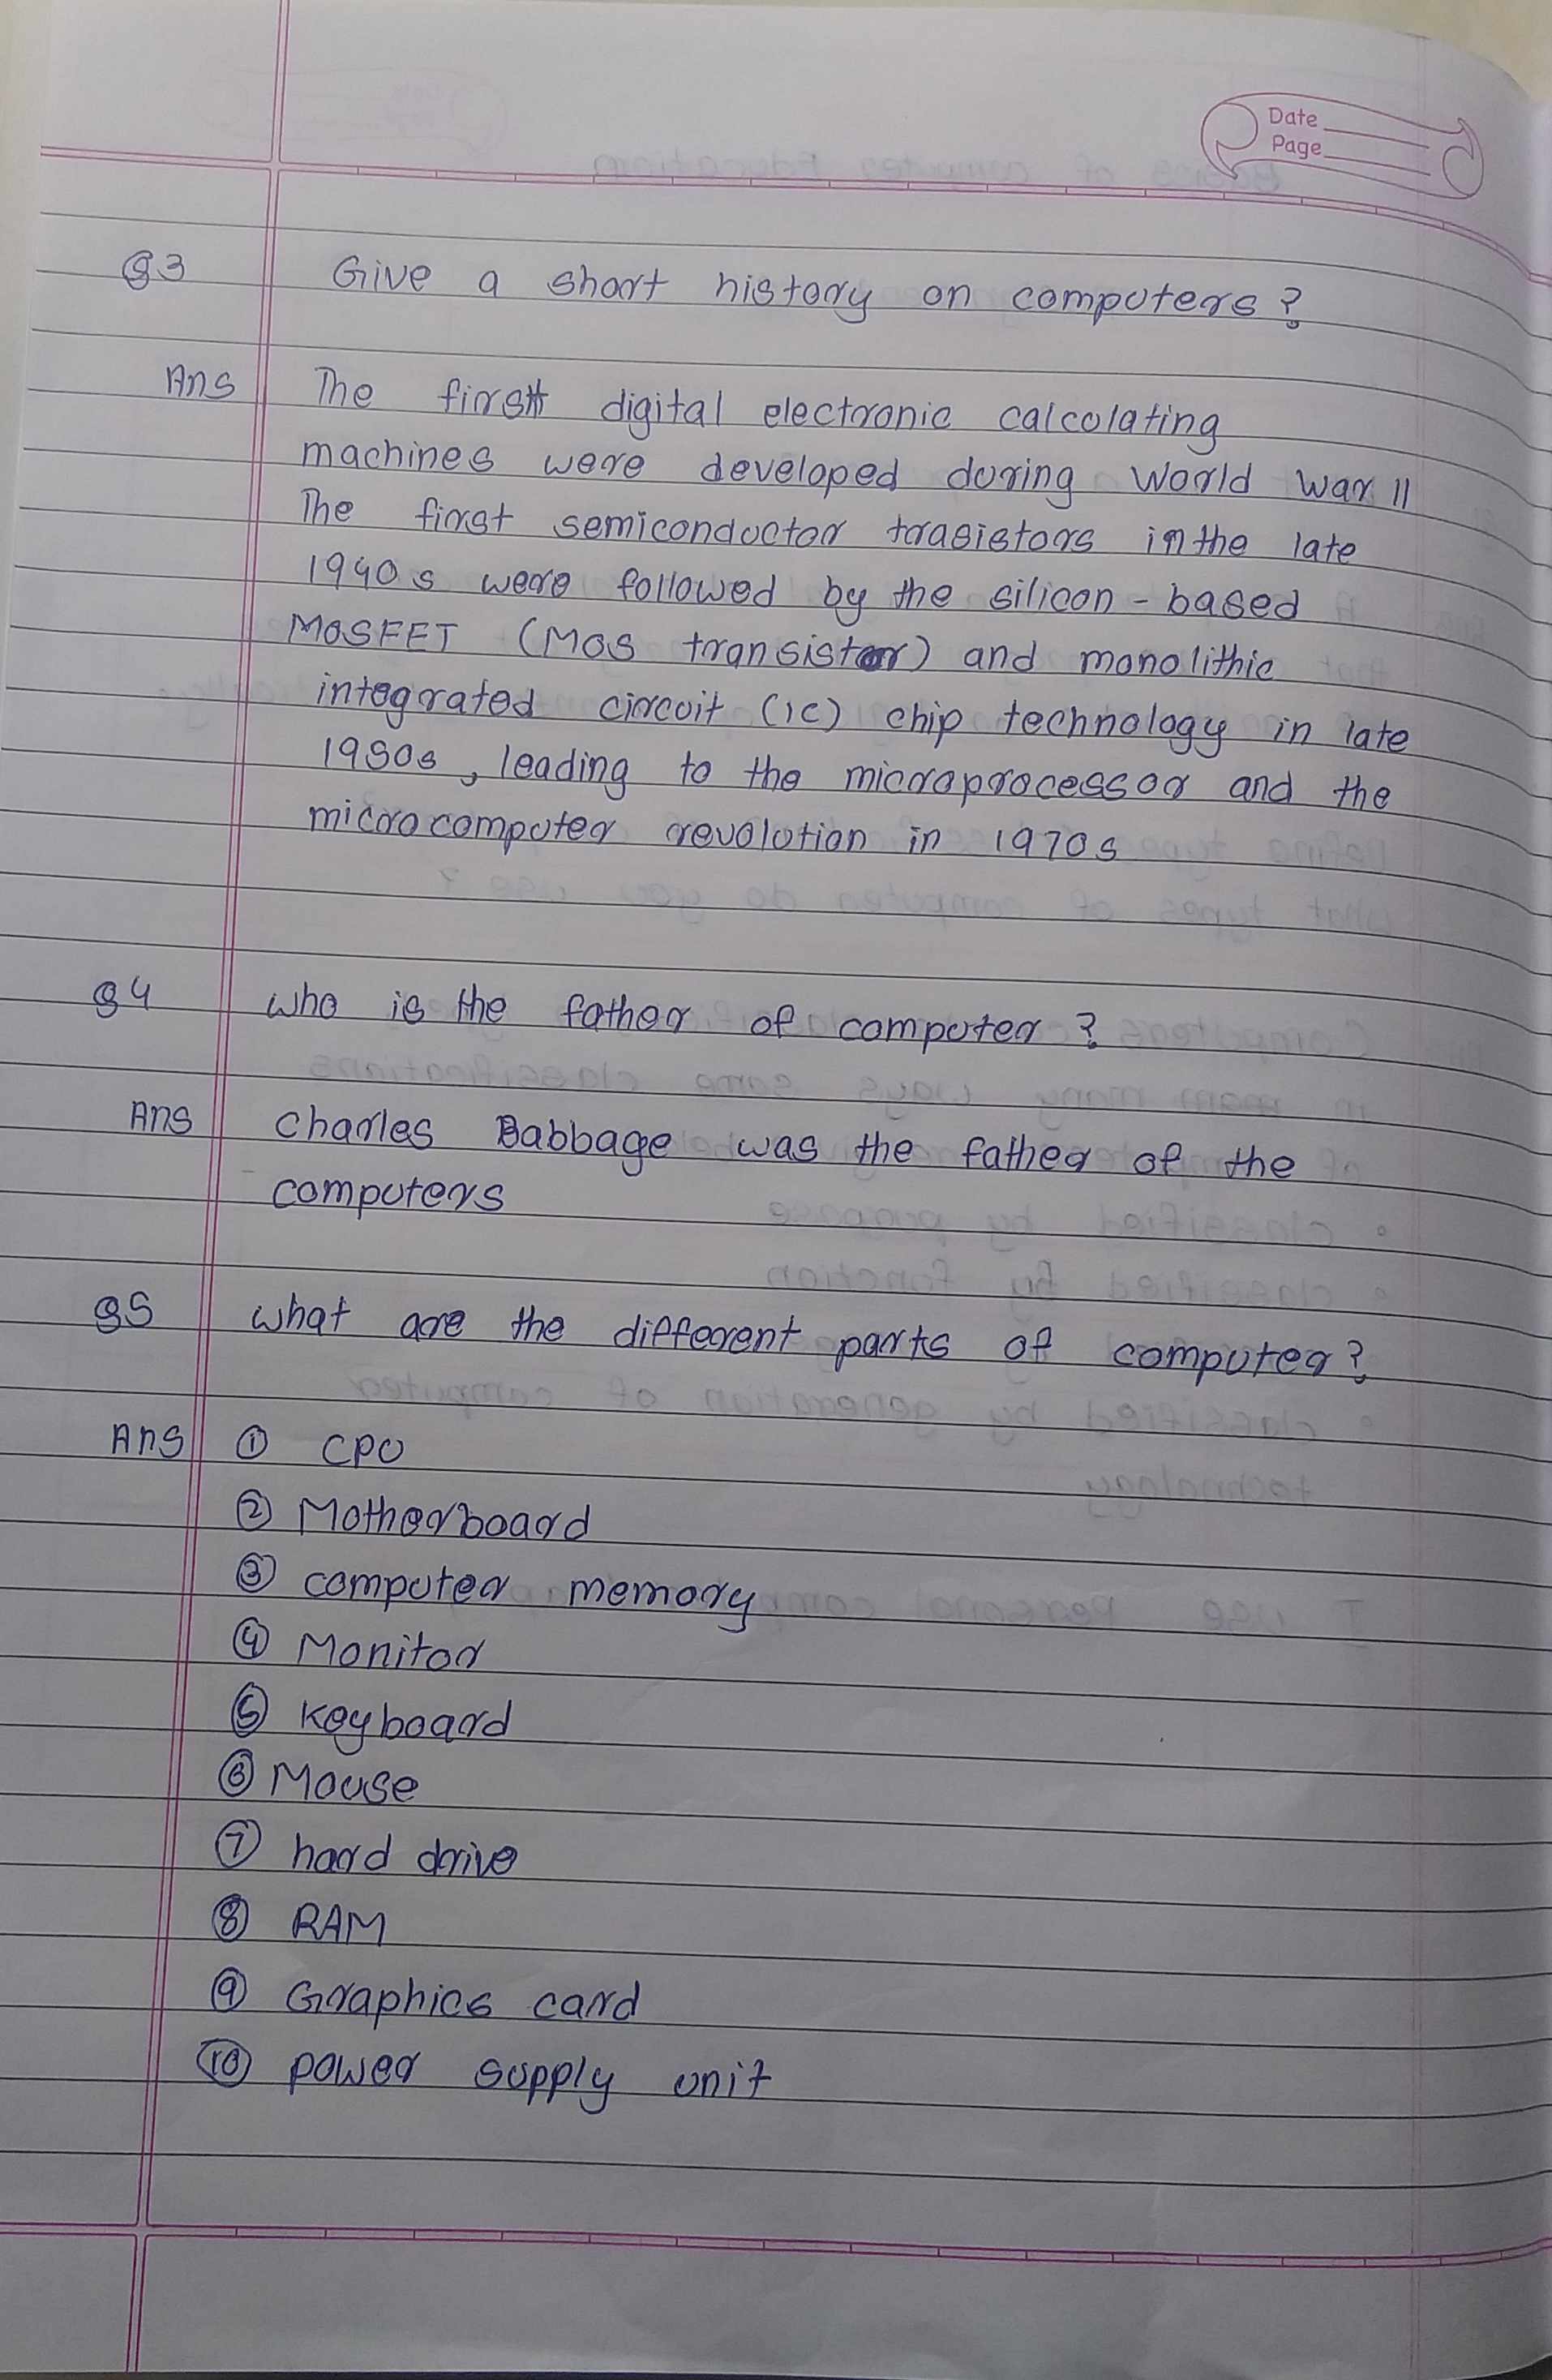 Date
Page
Q3 Give a short history on computers?
Ans The first digital electronic calculating
machines were developed during World War II
The first semiconductor trasistors in the late
1940s were followed by the silicon-based
MOSFET (MOS transistor) and monolithic
integrated circuit (IC) chip technology in late
1950s, leading to the microprocessor and the
microcomputer revolution in 1970s
Q4 who is the father of computer?
Ans Charles Babbage was the father of the
computers
Q5 what are the different parts of computer?
Ans ① CPU
② Motherboard
③ computer memory
④ Monitor
⑤ keyboard
⑥ Mouse
⑦ hard drive
⑧ RAM
⑨ Graphics card
⑩ power supply unit